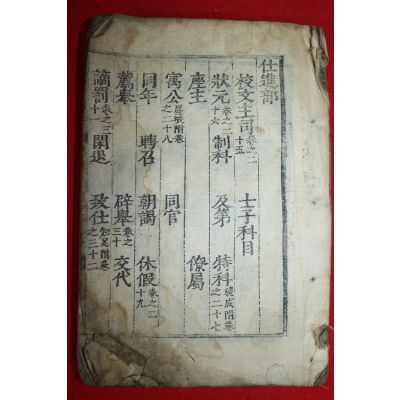 仕進部
校文主司卷之二十五 士子科目
狀元卷之二十六 制科 及第 特科晚成附卷之二十七
座主 僚屬
寓公卷之二十八 同官
同年 聘召 朝謁 休假卷之二十九
薦擧 辟擧卷之三十 交代
謫罰卷之三十一 閑退 致仕知足附卷之三十二